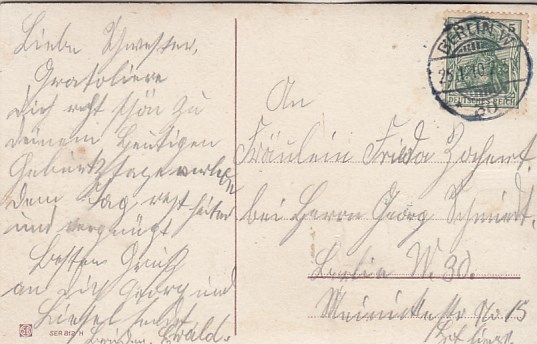 Liebe Schwester,
Gratoliere
dich recht schön zu
deinem heutigen
Geburtstage
dem Tag recht heiter
und vergnügt
Besten Gruß
an dich Georg und
Liesel
Bruder Ewald.
SER 812 H
BERLIN. W
25.1.10
DEUTSCHES REICH
An
Fräulein Frida Zochert.
bei Herrn Georg Schmidt.
Berlin W. 30.
No 15